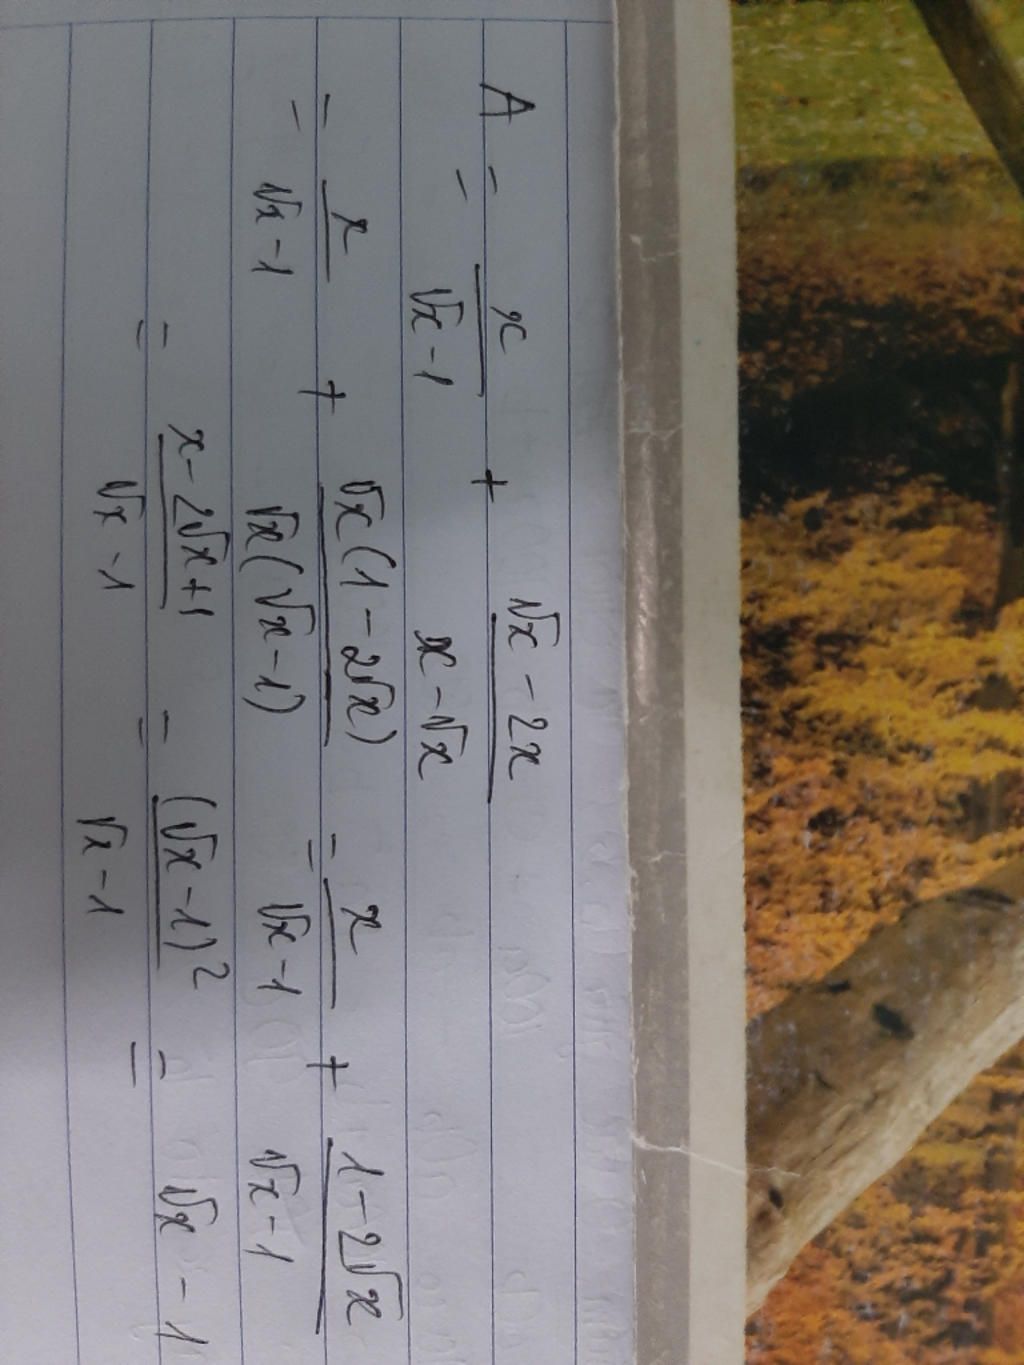 A = x/(√x - 1) + (√x - 2x)/(x - √x)
= x/(√x - 1) + √x(1 - 2√x)/(√x(√x - 1)) = x/(√x - 1) + (1 - 2√x)/(√x - 1)
= (x - 2√x + 1)/(√x - 1) = (√x - 1)²/(√x - 1) = √x - 1